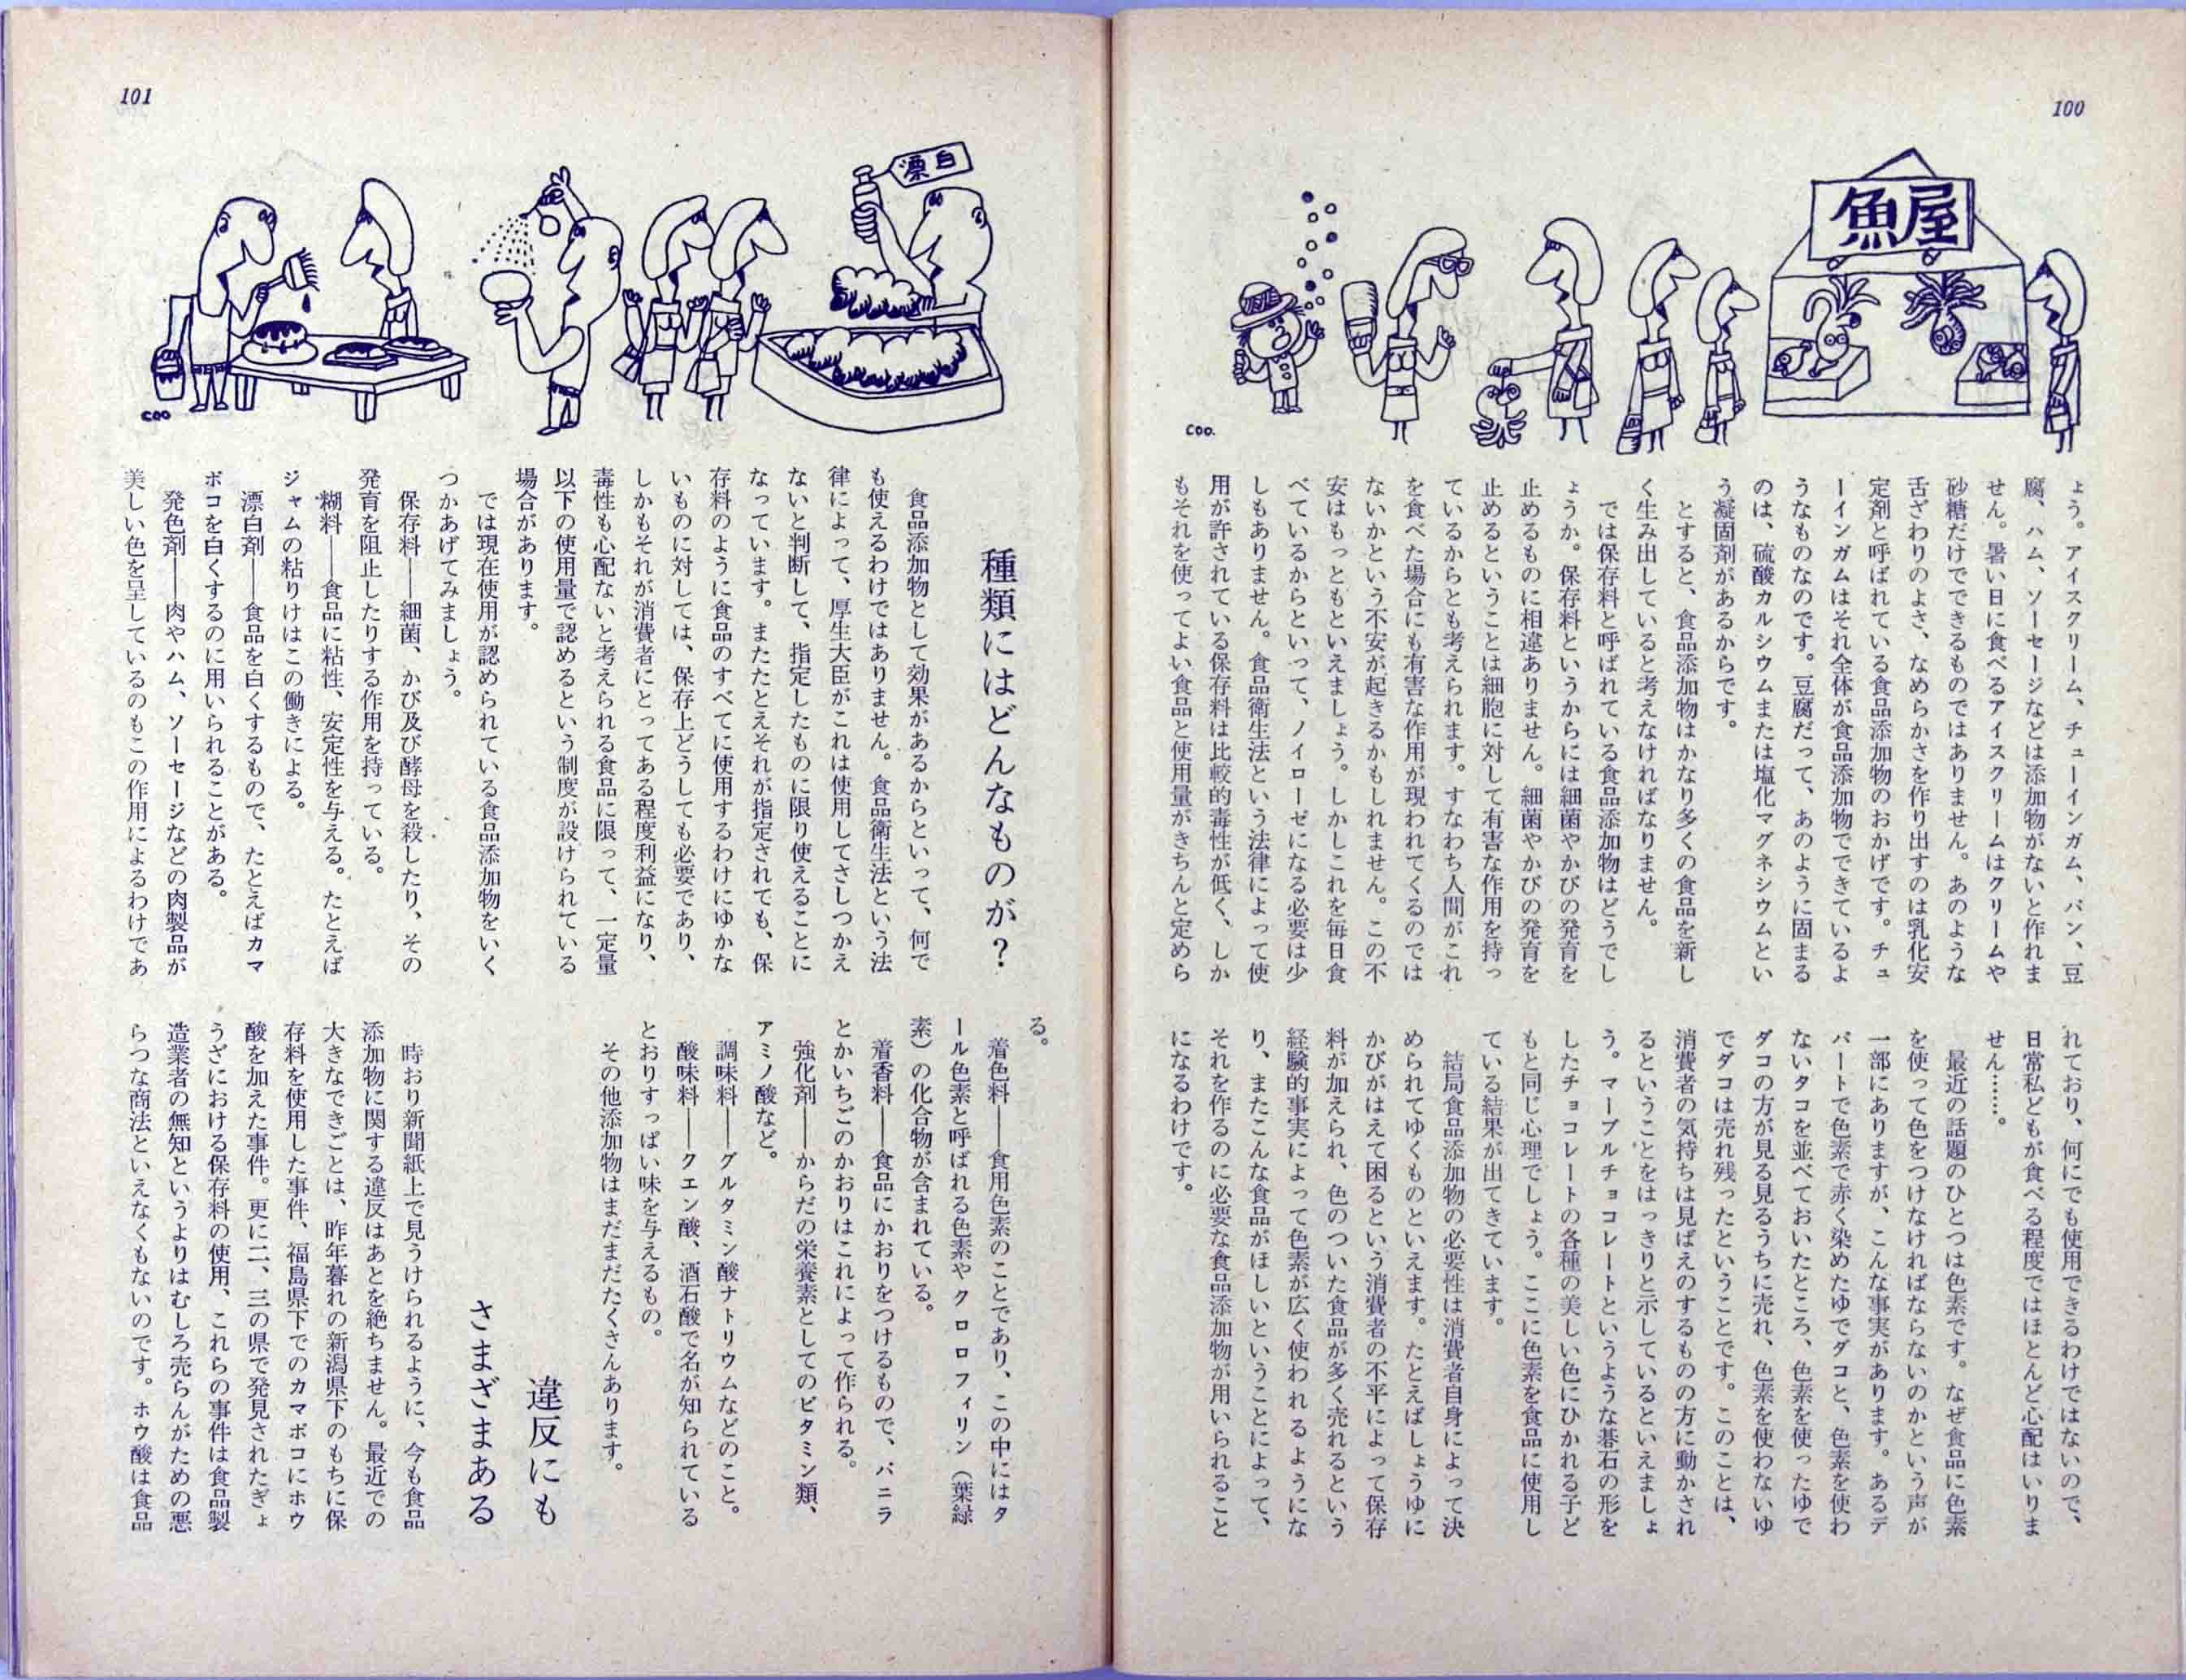 100
魚屋
coo.
ょう。アイスクリーム、チューインガム、パン、豆
腐、ハム、ソーセージなどは添加物がないと作れま
せん。暑い日に食べるアイスクリームはクリームや
砂糖だけでできるものではありません。あのような
舌ざわりのよさ、なめらかさを作り出すのは乳化安
定剤と呼ばれている食品添加物のおかげです。チュ
ーインガムはそれ全体が食品添加物でできているよ
うなものなのです。豆腐だって、あのように固まる
のは、硫酸カルシウムまたは塩化マグネシウムとい
う凝固剤があるからです。
とすると、食品添加物はかなり多くの食品を新し
く生み出していると考えなければなりません。
では保存料と呼ばれている食品添加物はどうでし
ょうか。保存料というからには細菌やかびの発育を
止めるものに相違ありません。細菌やかびの発育を
止めるということは細胞に対して有害な作用を持っ
ているからとも考えられます。すなわち人間がこれ
を食べた場合にも有害な作用が現われてくるのでは
ないかという不安が起きるかもしれません。この不
安はもっともといえましょう。しかしこれを毎日食
べているからといって、ノイローゼになる必要は少
しもありません。食品衛生法という法律によって使
用が許されている保存料は比較的毒性が低く、しか
もそれを使ってよい食品と使用量がきちんと定めら
れており、何にでも使用できるわけではないので、
日常私どもが食べる程度ではほとんど心配はいりま
せん……。
最近の話題のひとつは色素です。なぜ食品に色素
を使って色をつけなければならないのかという声が
一部にありますが、こんな事実があります。あるデ
パートで色素で赤く染めたゆでダコと、色素を使わ
ないタコを並べておいたところ、色素を使ったゆで
ダコの方が見る見るうちに売れ、色素を使わないゆ
でダコは売れ残ったということです。このことは、
消費者の気持ちは見ばえのするものの方に動かされ
るということをはっきりと示しているといえましょ
う。マーブルチョコレートというような碁石の形を
したチョコレートの各種の美しい色にひかれる子ど
もと同じ心理でしょう。ここに色素を食品に使用し
ている結果が出てきています。
結局食品添加物の必要性は消費者自身によって決
められてゆくものといえます。たとえばしょうゆに
かびがはえて困るという消費者の不平によって保存
料が加えられ、色のついた食品が多く売れるという
経験的事実によって色素が広く使われるようにな
り、またこんな食品がほしいということによって、
それを作るのに必要な食品添加物が用いられること
になるわけです。
101
漂白
coo
種類にはどんなものが？
食品添加物として効果があるからといって、何で
も使えるわけではありません。食品衛生法という法
律によって、厚生大臣がこれは使用してさしつかえ
ないと判断して、指定したものに限り使えることに
なっています。またたとえそれが指定されても、保
存料のように食品のすべてに使用するわけにゆかな
いものに対しては、保存上どうしても必要であり、
しかもそれが消費者にとってある程度利益になり、
毒性も心配ないと考えられる食品に限って、一定量
以下の使用量で認めるという制度が設けられている
場合があります。
では現在使用が認められている食品添加物をいく
つかあげてみましょう。
保存料——細菌、かび及び酵母を殺したり、その
発育を阻止したりする作用を持っている。
糊料——食品に粘性、安定性を与える。たとえば
ジャムの粘りけはこの働きによる。
漂白剤——食品を白くするもので、たとえばカマ
ボコを白くするのに用いられることがある。
発色剤——肉やハム、ソーセージなどの肉製品が
美しい色を呈しているのもこの作用によるわけであ
る。
着色料——食用色素のことであり、この中にはタ
ール色素と呼ばれる色素やクロロフィリン（葉緑
素）の化合物が含まれている。
着香料——食品にかおりをつけるもので、バニラ
とかいちごのかおりはこれによって作られる。
強化剤——からだの栄養素としてのビタミン類、
アミノ酸など。
調味料——グルタミン酸ナトリウムなどのこと。
酸味料——クエン酸、酒石酸で名が知られている
とおりすっぱい味を与えるもの。
その他添加物はまだまだたくさんあります。
違反にも
さまざまある
時おり新聞紙上で見うけられるように、今も食品
添加物に関する違反はあとを絶ちません。最近での
大きなできごとは、昨年暮れの新潟県下のもちに保
存料を使用した事件、福島県下でのカマボコにホウ
酸を加えた事件。更に二、三の県で発見されたぎょ
うざにおける保存料の使用、これらの事件は食品製
造業者の無知というよりはむしろ売らんがための悪
らつな商法といえなくもないのです。ホウ酸は食品